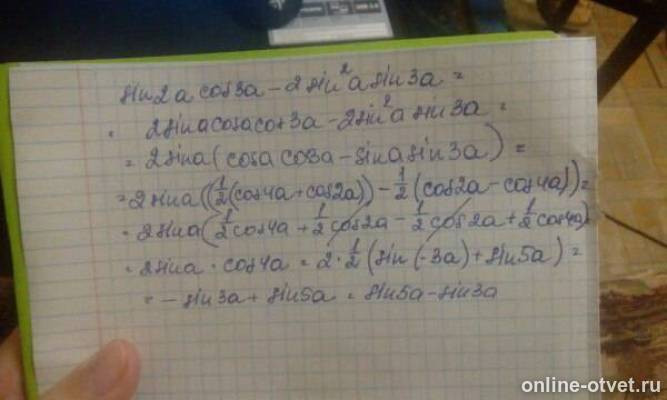 sin2a cos3a - 2sin²a sin3a =
= 2sina cosa cos3a - 2sin²a sin3a =
= 2sina (cosa cos3a - sina sin3a) =
= 2sina ((1/2(cos4a + cos2a)) - 1/2(cos2a - cos4a)) =
= 2sina (1/2cos4a + 1/2cos2a - 1/2cos2a + 1/2cos4a)
= 2sina · cos4a = 2 · 1/2 (sin(-3a) + sin5a) =
= -sin3a + sin5a = sin5a - sin3a
online-otvet.ru